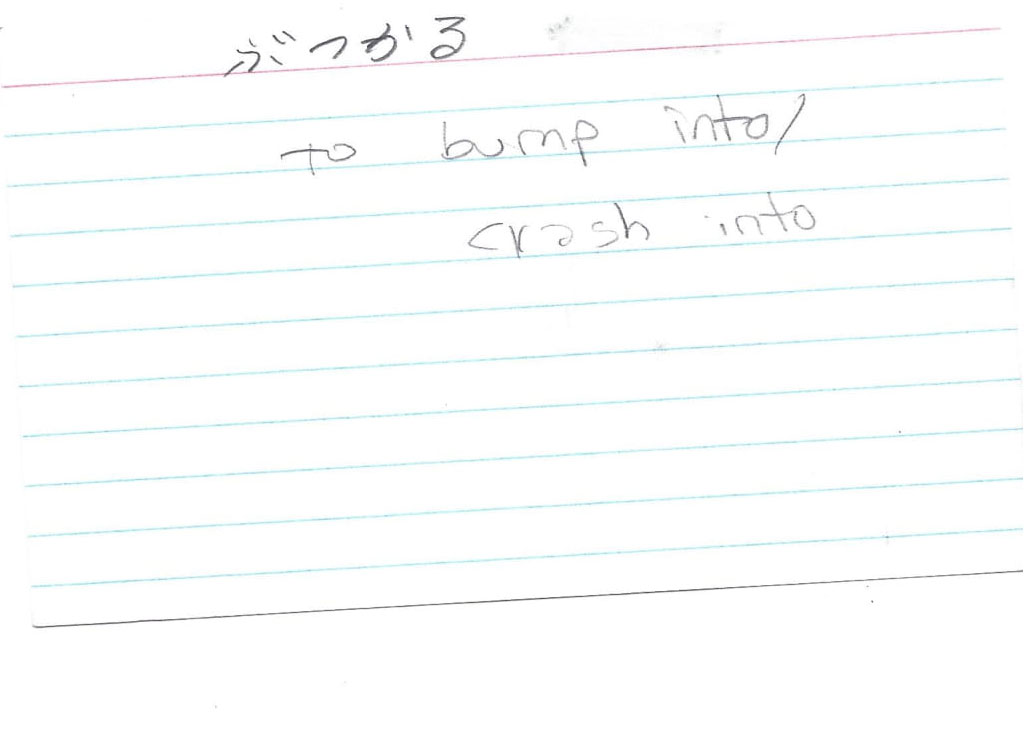 ぶつかる
to bump into/
crash into